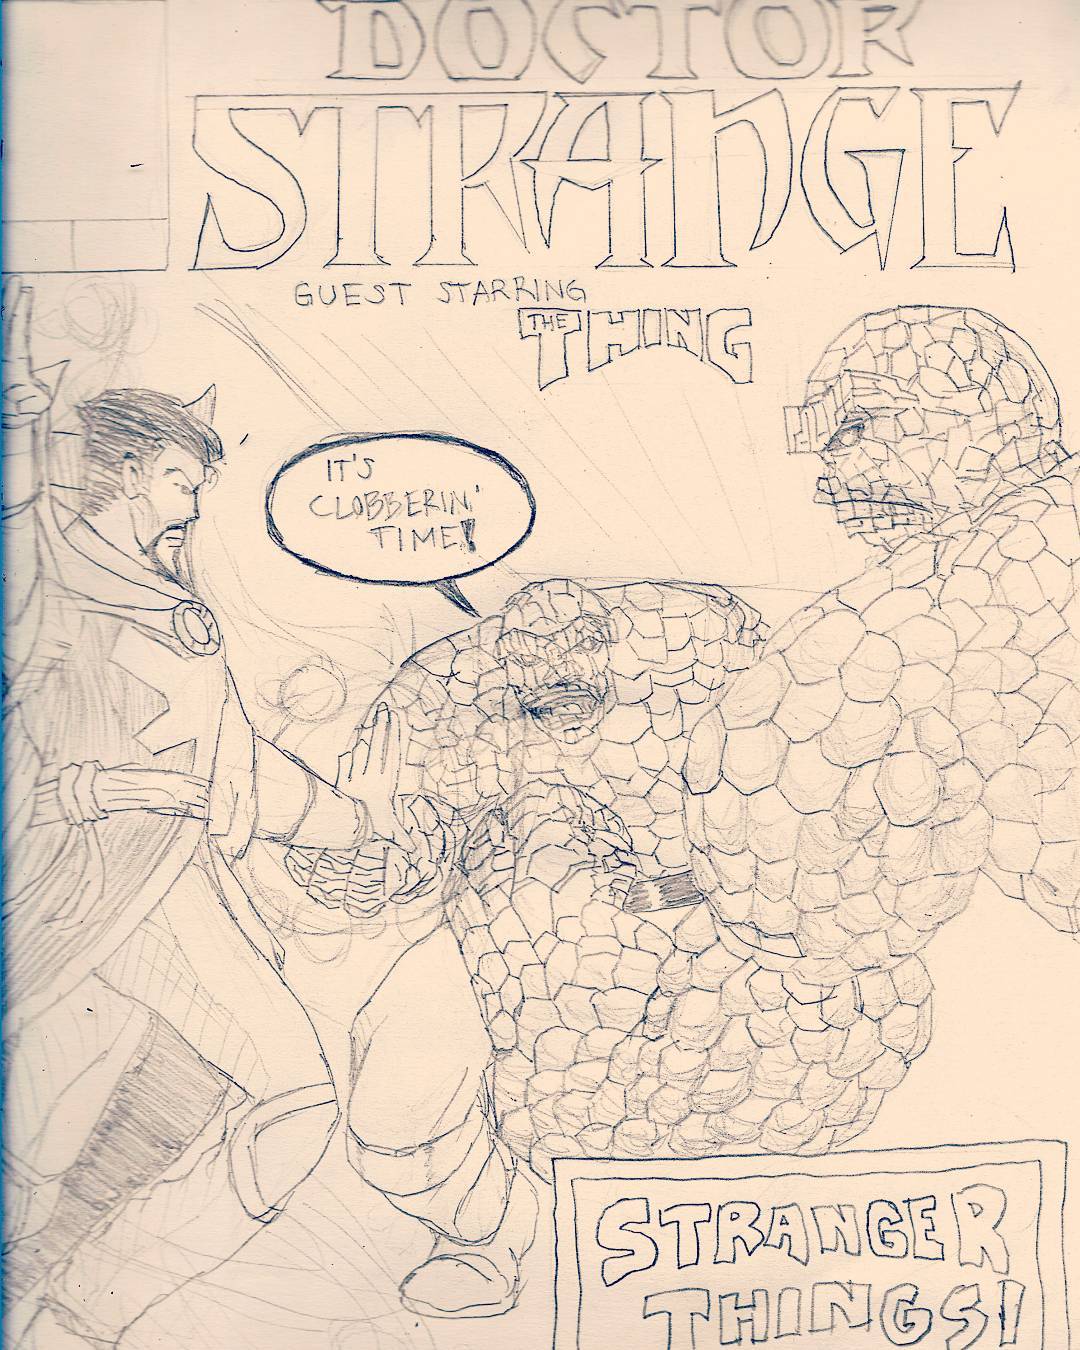 DOCTOR
STRANGE
GUEST STARRING
THE THING
IT'S
CLOBBERIN'
TIME!
STRANGER
THINGS!